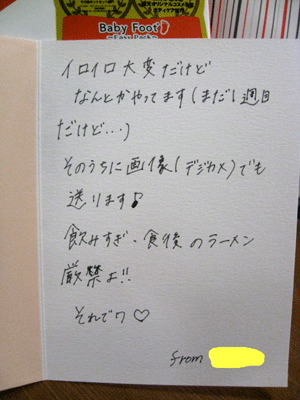 Baby Foot
イロイロ大変だけど
なんとかやってます(まだ1週目
だけど…)
そのうちに画像(デジカメ)でも
送ります♪
飲みすぎ、食後のラーメン
厳禁よ!!
それでワ♡
from